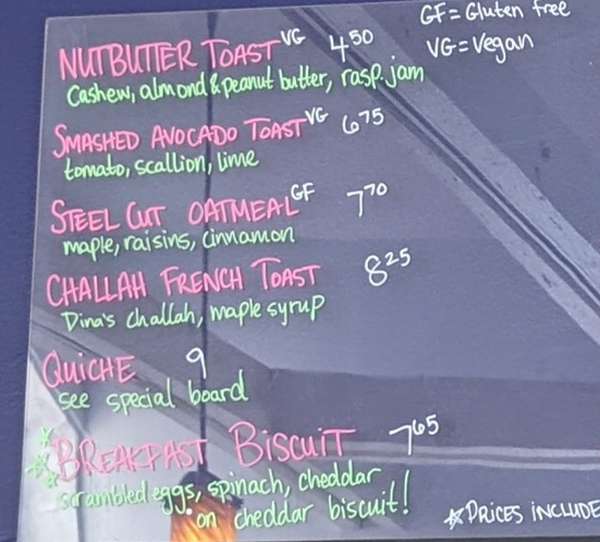 GF = Gluten free
VG = Vegan
NUTBUTTER TOAST VG 4 50
Cashew, almond & peanut butter, rasp. jam
SMASHED AVOCADO TOAST VG 6 75
tomato, scallion, lime
STEEL CUT OATMEAL GF 7 70
maple, raisins, cinnamon
CHALLAH FRENCH TOAST 8 25
Dina's challah, maple syrup
QUICHE 9
see special board
BREAKFAST BISCUIT 7 65
scrambled eggs, spinach, cheddar
on cheddar biscuit!
PRICES INCLUDE